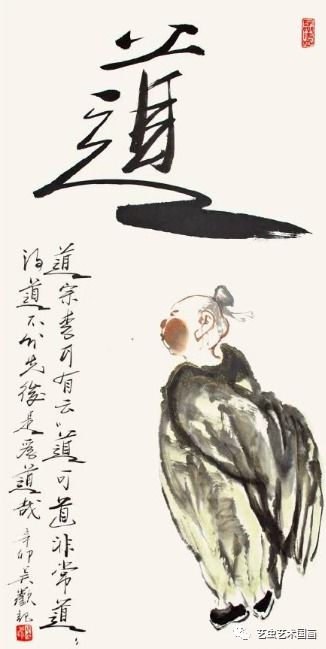 道
道宗李耳有云道可道非常道
得道不分先後是爲道哉 辛卯吴歡記
艺虫艺术国画